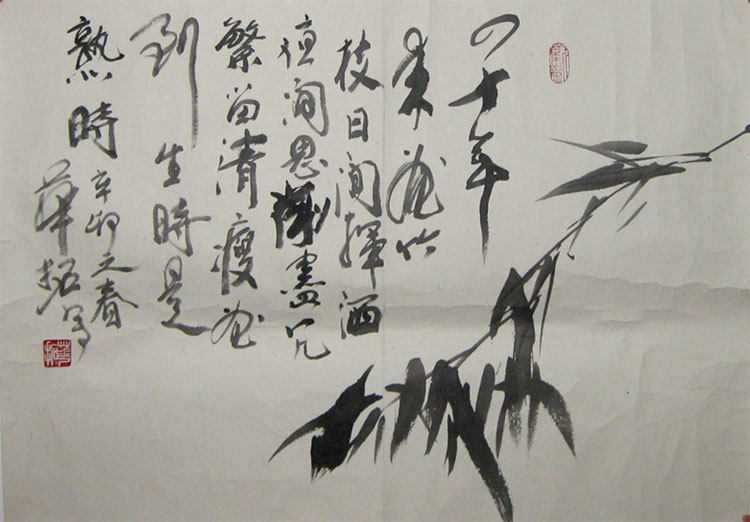 四十年
来画竹
枝日间揮洒
夜间思削盡冗
繁留清瘦画
到生時是
熟時辛卯之春
華拓写